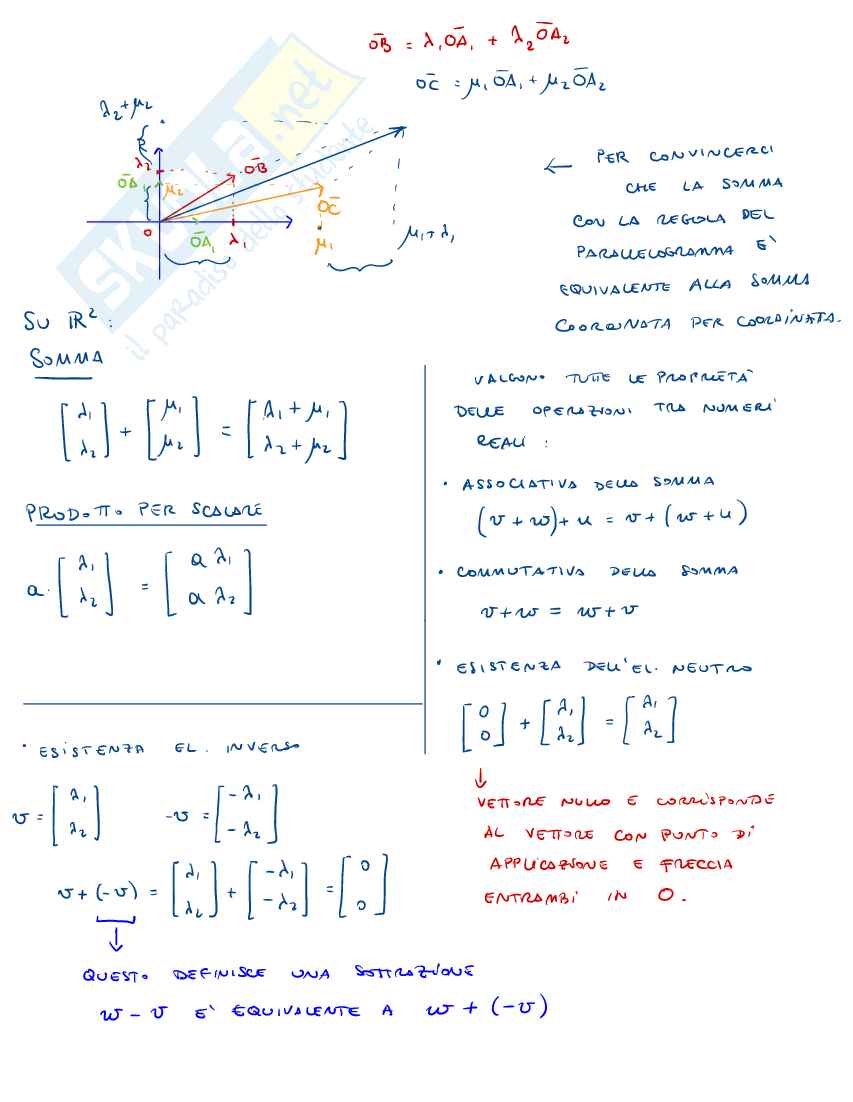 OB̄ = λ₁OĀ₁ + λ₂OĀ₂
OC̄ = μ₁OĀ₁ + μ₂OĀ₂
λ₂+μ₂
λ₂
OĀ₂
μ₂
OB̄
OC̄
O
OĀ₁
λ₁
μ₁
μ₁+λ₁
← PER CONVINCERCI
CHE LA SOMMA
CON LA REGOLA DEL
PARALLELOGRAMMA E'
EQUIVALENTE ALLA SOMMA
COORDINATA PER COORDINATA.
SKUOLA.net
il paradiso dello studente
SU ℝ²:
SOMMA
[λ₁ λ₂] + [μ₁ μ₂] = [λ₁+μ₁ λ₂+μ₂]
PRODOTTO PER SCALARE
a · [λ₁ λ₂] = [a λ₁ a λ₂]
VALGONO TUTTE LE PROPRIETÀ
DELLE OPERAZIONI TRA NUMERI
REALI:
• ASSOCIATIVA DELLA SOMMA
(v + w) + u = v + (w + u)
• COMMUTATIVA DELLA SOMMA
v + w = w + v
• ESISTENZA DELL'EL. NEUTRO
[0 0] + [λ₁ λ₂] = [λ₁ λ₂]
↓
VETTORE NULLO E CORRISPONDE
AL VETTORE CON PUNTO DI
APPLICAZIONE E FRECCIA
ENTRAMBI IN O.
• ESISTENZA EL. INVERSO
v = [λ₁ λ₂] -v = [-λ₁ -λ₂]
v + (-v) = [λ₁ λ₂] + [-λ₁ -λ₂] = [0 0]
↓
QUESTO DEFINISCE UNA SOTTRAZIONE
w - v E' EQUIVALENTE A w + (-v)